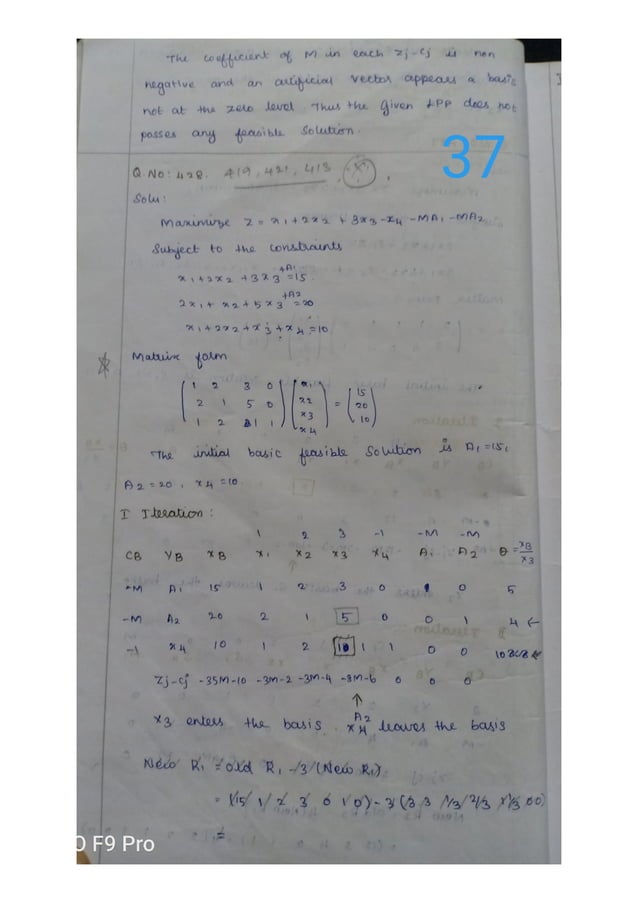 The coefficient of M in each Zj-Cj is non
negative and an artificial vector appears a basis
not at the zero level. Thus the given LPP does not
posses any feasible solution.
37
Q.No: 428. 419, 421, 413
Solu:
Maximize Z = x1+2x2 + 3x3-x4 -MA1 -MA2
Subject to the constraints
x1+2x2 +3x3 +A1 =15
2x1+ x2+5x3 +A2 =20
x1+2x2+x3+x4=10
Matrix form
1 2 3 0 x1 15
2 1 5 0 x2 = 20
1 2 1 1 x3 10
x4
The initial basic feasible solution is A1=15,
A2=20, x4=10.
I Iteration:
1 2 3 -1 -M -M
CB YB XB x1 x2 x3 x4 A1 A2 θ=XB/X3
-M A1 15 1 2 3 0 1 0 5
-M A2 20 2 1 5 0 0 1 4 ←
-1 x4 10 1 2 1 1 0 0 10 ←
Zj-Cj -35M-10 -3M-2 -3M-4 -8M-6 0 0 0
↑
x3 enters the basis. A2 x4 leaves the basis
New R1 = old R1 -3(New R1)
= (15 1 2 3 0 1 0) - 3(3.3 1/3 2/3 1/3 00)
=
O F9 Pro